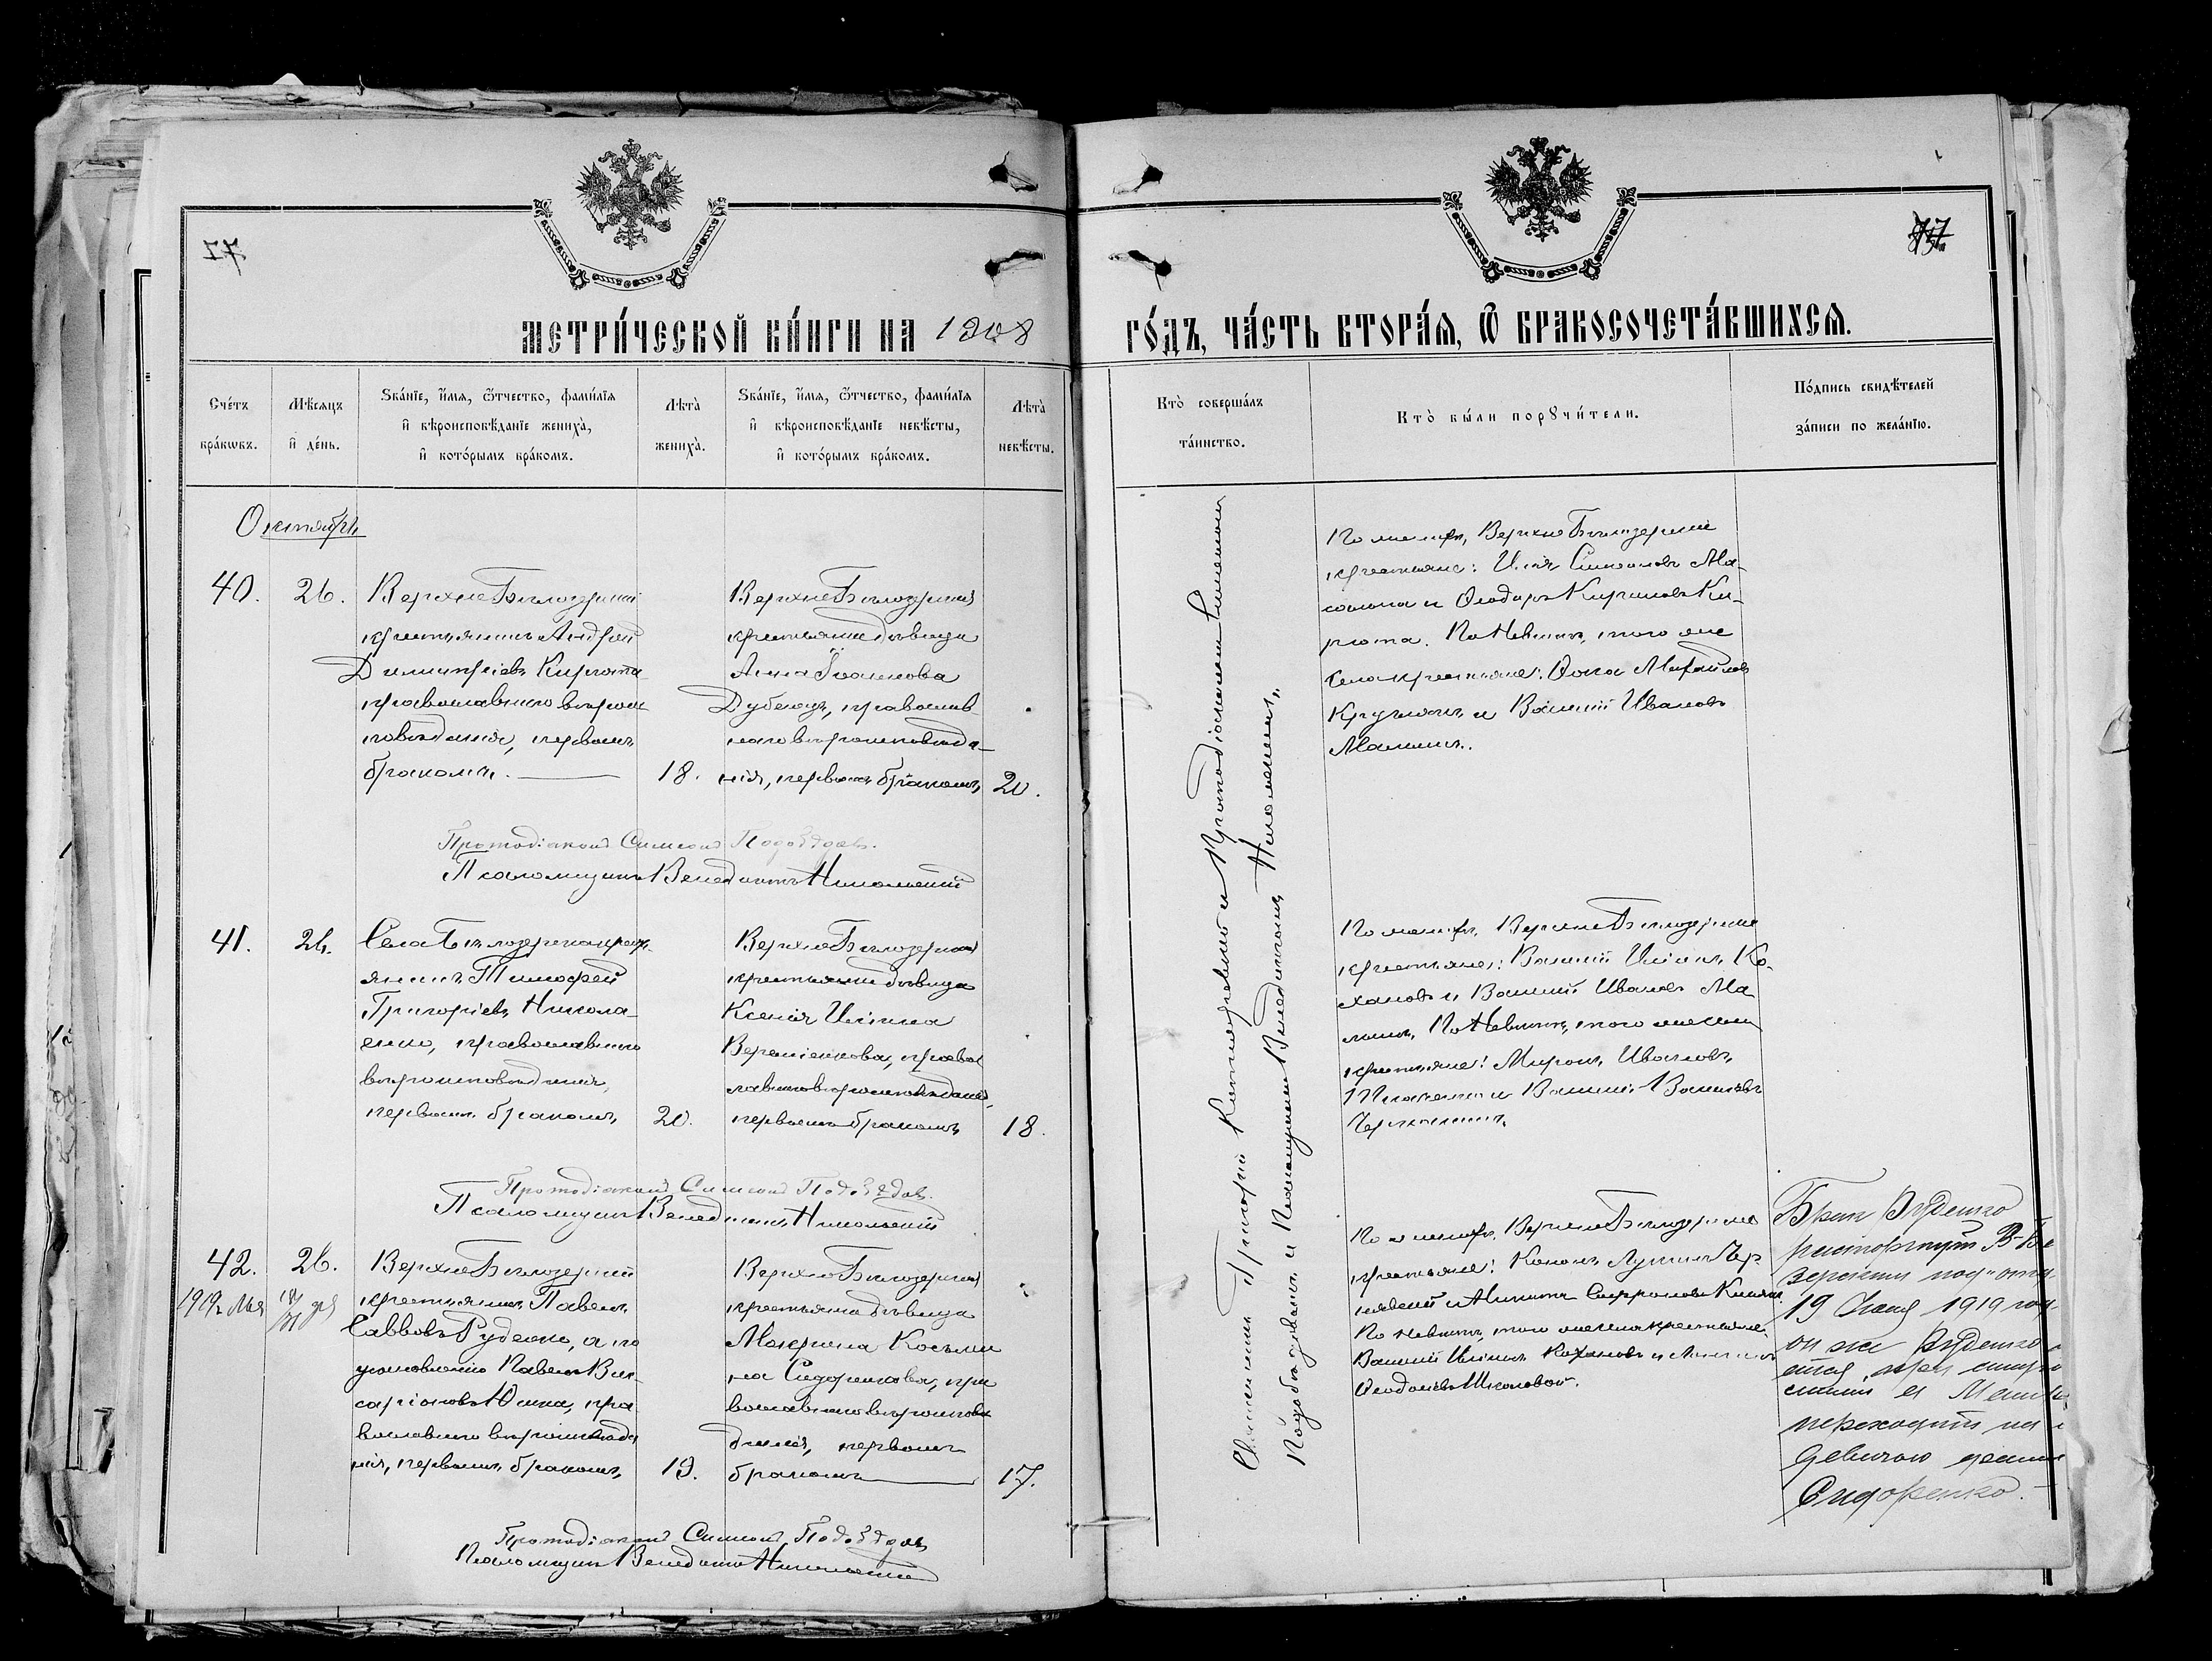 77
МЕТРИ́ЧЕСКОЙ КНИ́ГИ НА 1908
Сче́тъ бра́кωвъ.
Мѣ́сѧцъ и҆ де́нь.
Ѕва́нїе, и҆́мѧ, ѻ҆́тчество, фами́лїѧ
и҆ вѣроисповѣ́данїе жениха̀,
и҆ кото́рымъ бра́комъ.
Лѣта̀ жениха̀.
Ѕва́нїе, и҆́мѧ, ѻ҆́тчество, фами́лїѧ
и҆ вѣроисповѣ́данїе невѣ́сты,
и҆ кото́рымъ бра́комъ.
Лѣта̀ невѣ́сты.
Октябрь
40. 26.
Верхне Бѣлозерскій
крестьянинъ Андрей
Димитріевъ Кирюта
православнаго вѣроис
повѣданія, первымъ
бракомъ.
18.
Верхне Бѣлозерская
крестьянка дѣвица
Анна Іоаннова
Дубецъ, православ-
наго вѣроисповѣда-
нія, первымъ бракомъ
20.
Протодіаконъ Симеонъ Подоѣздовъ.
Псаломщикъ Венедиктъ Никольскій
41. 26.
Села Бѣлозерска крест-
янинъ Тимофей
Григоріевъ Никола-
енко, православнаго
вѣроисповѣданія,
первымъ бракомъ,
20.
Верхне Бѣлозерская
крестьянка дѣвица
Ксенія Иліина
православнаго вѣроисповѣданія,
первымъ бракомъ,
18.
Протодіаконъ Симеонъ Подоѣздовъ.
Псаломщикъ Венедиктъ Никольскій
42. 26.
1919 г. Мая
Верхне Бѣлозерскій
крестьянинъ Павелъ
Саввовъ Руденко, а по
усыновленію Павелъ Вис-
саріоновъ Юшка, пра-
вославнаго вѣроисповѣда
нія, первымъ бракомъ,
19.
Верхне Бѣлозерская
крестьянка дѣвица
Макрина Косьми
на Сидоренкова, пра
вославнаго вѣроисповѣ
данія, первымъ
бракомъ
17.
Протодіаконъ Симеонъ Подоѣздовъ
Псаломщикъ Венедиктъ Никольскій
77
ГО́ДЪ, ЧА́СТЬ ВТОРА́Ѧ, Ѡ҆ БРАКОСОЧЕТА́ВШИХСѦ.
Кто̀ соверша́лъ та́инство.
Кто̀ бы́ли порꙋчи́тели.
По́дпись свидѣ́телей за́писи по жела́нїю.
Священникъ Григорій и Протодіаконъ Симеонъ
Подоѣздовъ и Псаломщикъ Венедиктъ Никольскій
По женихѣ, Верхне Бѣлозерскіе
крестьяне: Илія Симеоновъ Ма-
и Ѳеодоръ Кириловъ Ки-
рюта. По Невѣстѣ, того же
села крестьяне: Ѳома Михайловъ
Круглякъ и Василій Ивановъ
Малышъ.
По женихѣ, Верхне Бѣлозерскіе
крестьяне: Василій Иліинъ Ко-
хановъ и Василій Ивановъ Ма
лышъ, По Невѣстѣ, того же села
крестьяне: Миронъ Ивановъ
и Василій Васильевъ
По женихѣ, Верхне Бѣлозерскіе
крестьяне: Кононъ Лукинъ Чер
и Никита Софроновъ
По невѣстѣ, того же села крестьяне:
Василій Иліинъ Кохановъ и
Ѳеодосіевъ Шкаловой.
Бракъ Руденко
расторгнутъ В-Бе
зерскимъ
19 Мая 1919 года
он же Руденко
переходитъ на
девичью
Сидоренко.